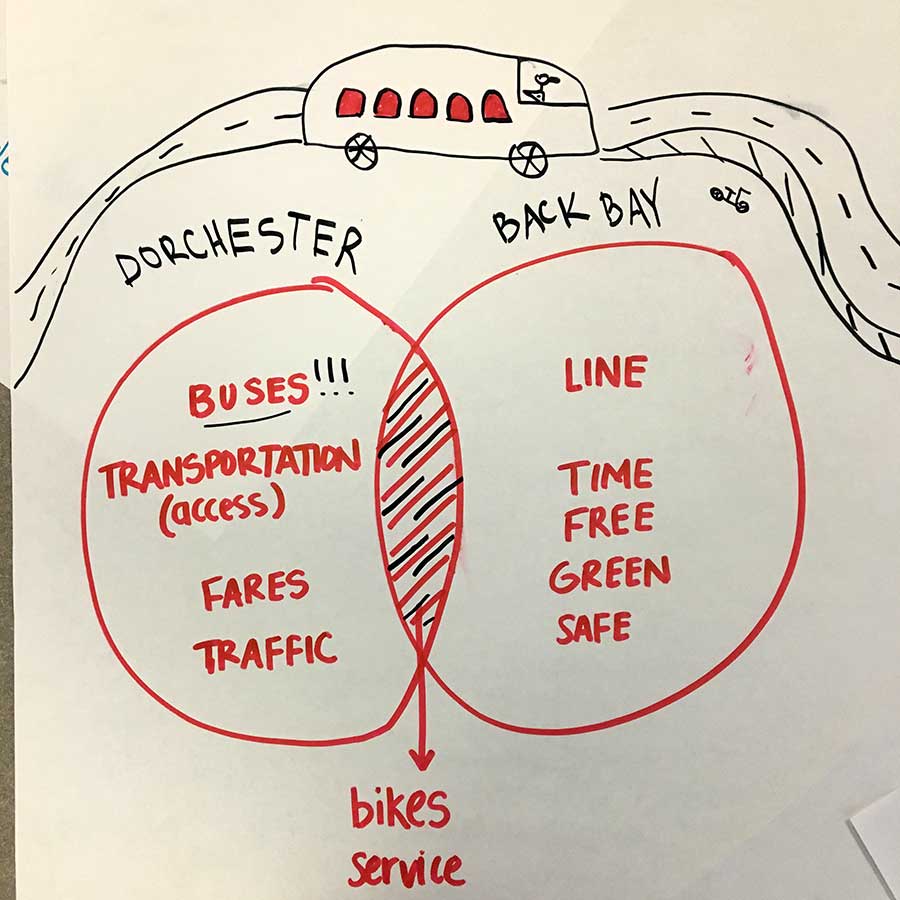 DORCHESTER
BACK BAY
BUSES!!!
TRANSPORTATION
(access)
FARES
TRAFFIC
LINE
TIME
FREE
GREEN
SAFE
bikes
service